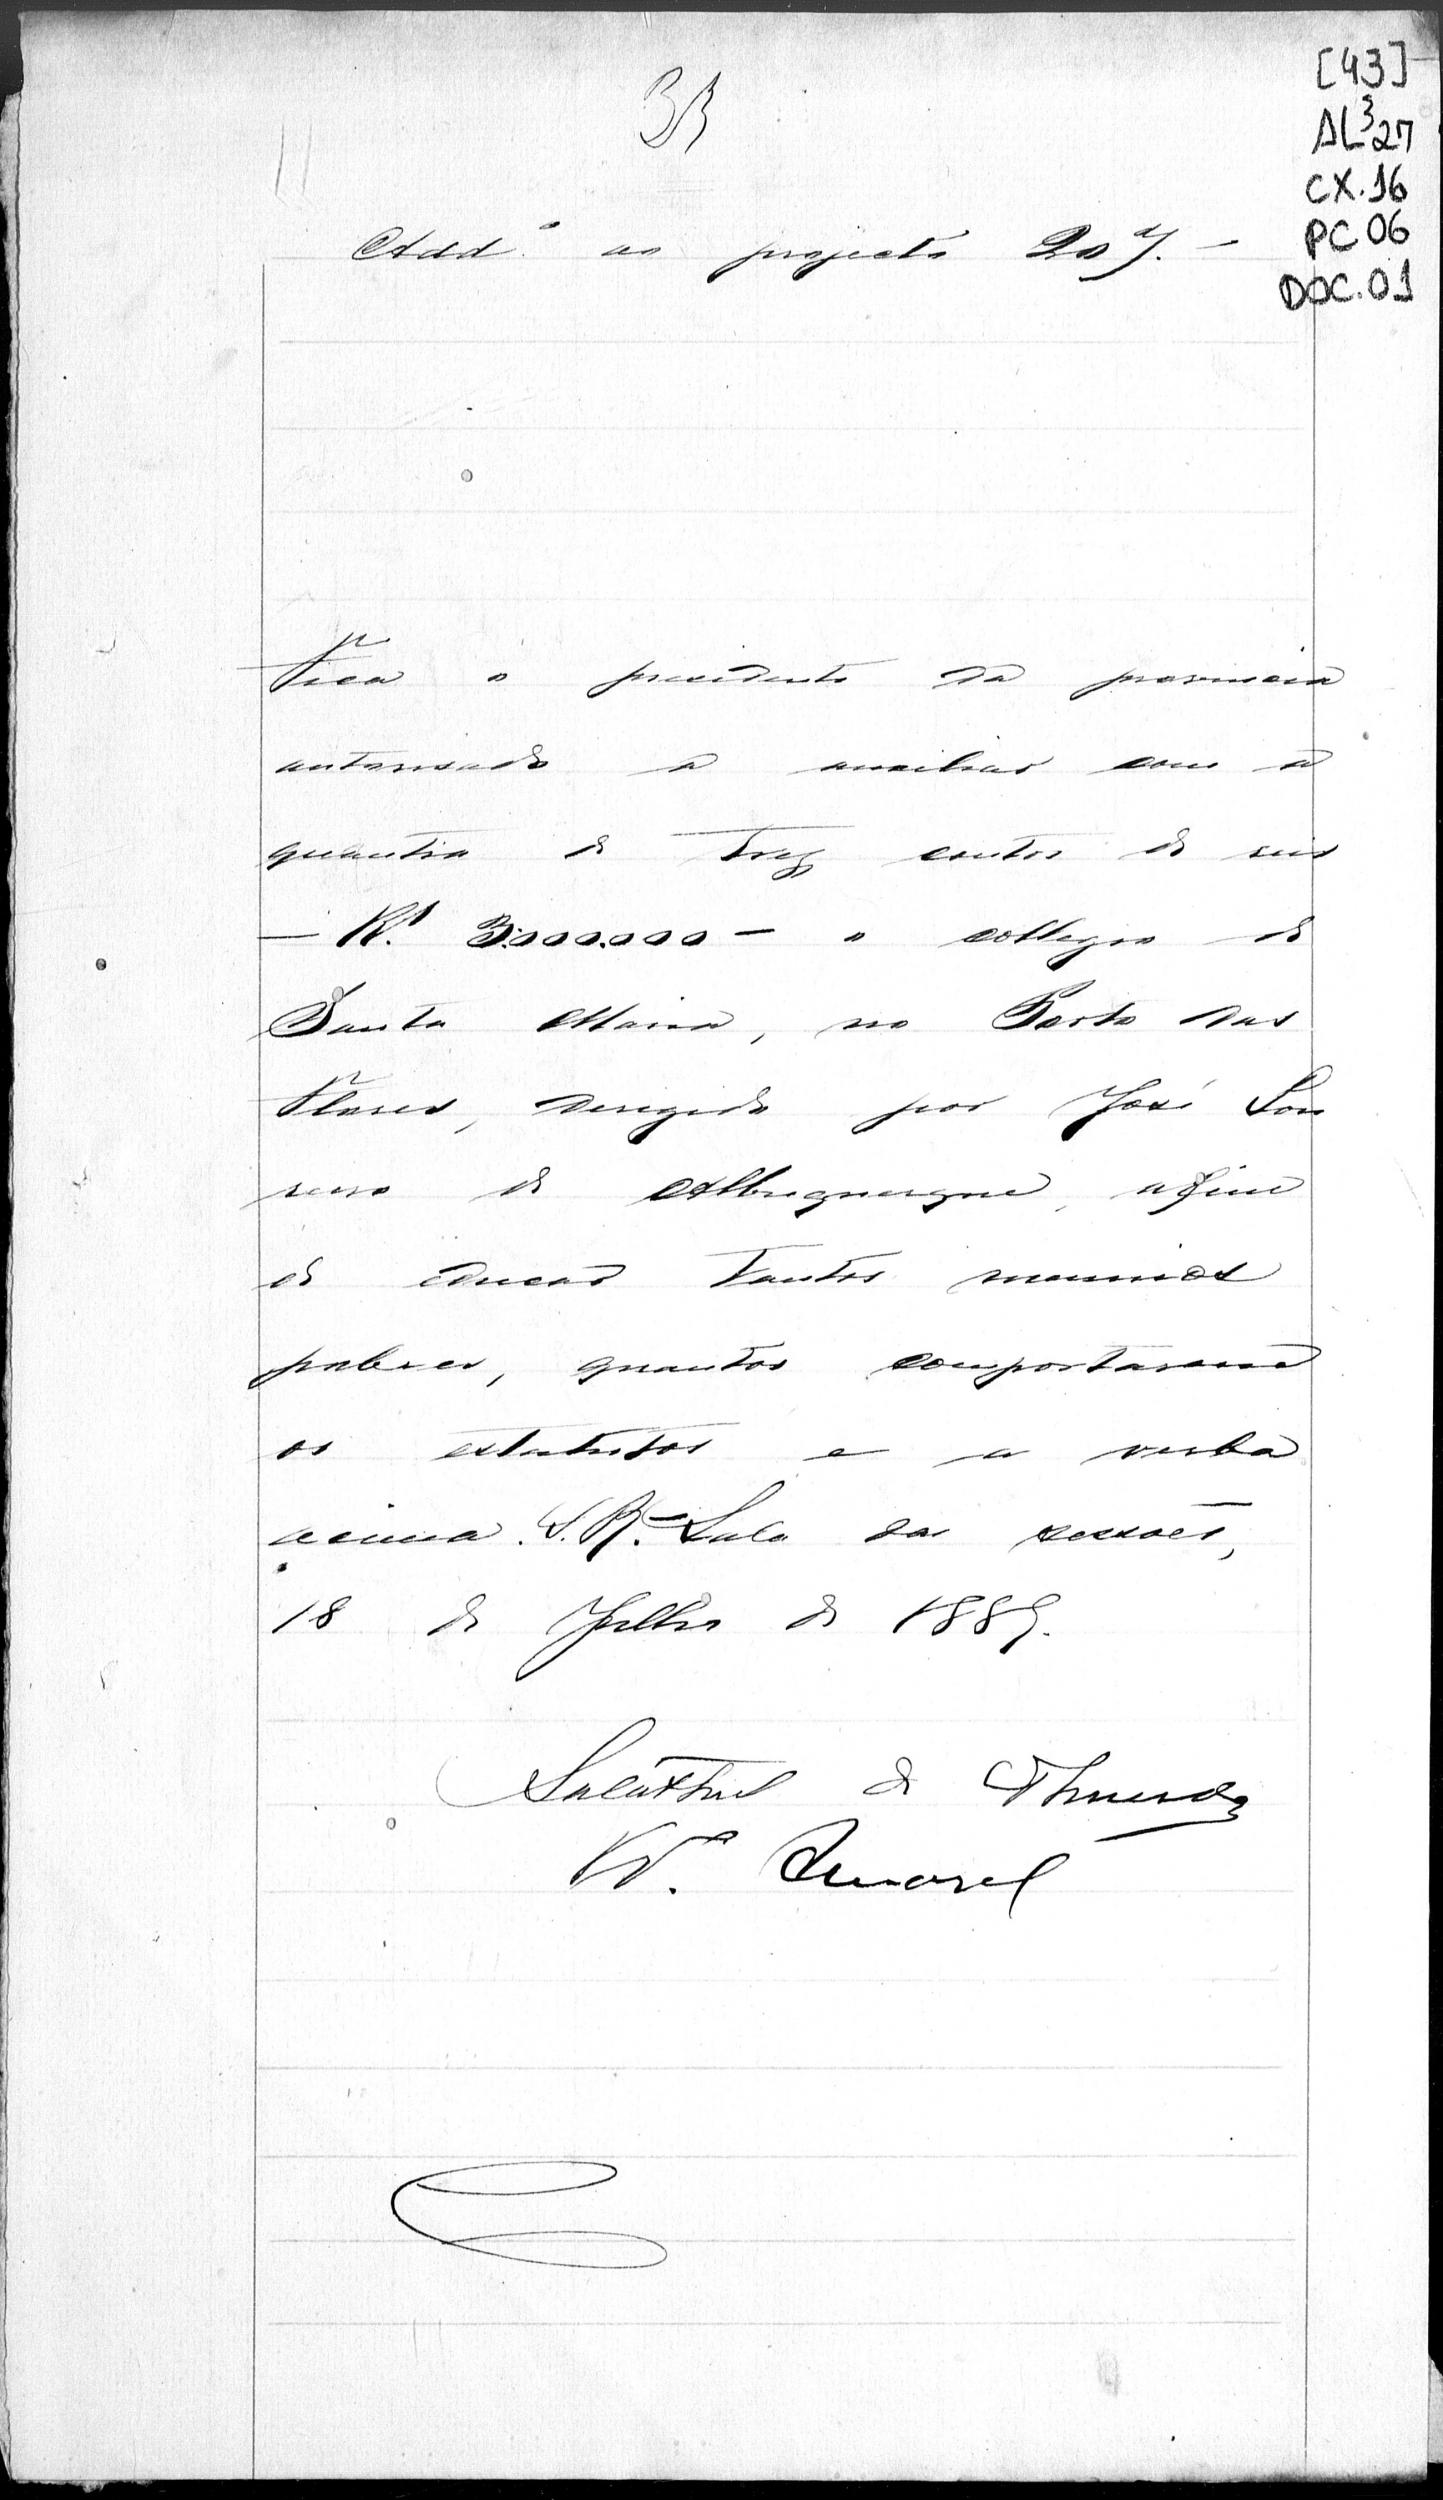 [43]
AL³27
CX.16
PC 06
DOC.01
33
Add.º ao projecto 207. –
Fica o presidente da provincia
autorisado a auxiliar com a
quantia de trez contos de reis
– R.s 3.000.000 – o collegio de
Santa Maria, no Porto das
Flores, dirigido por José Lou
renço de Albuquerque, afim
de educar tantos meninos
pobres, quantos comportarem
os estatutos e a verba
acima. S.R. – Sala das sessões,
18 de Julho de 1889.
de
W. Amaral